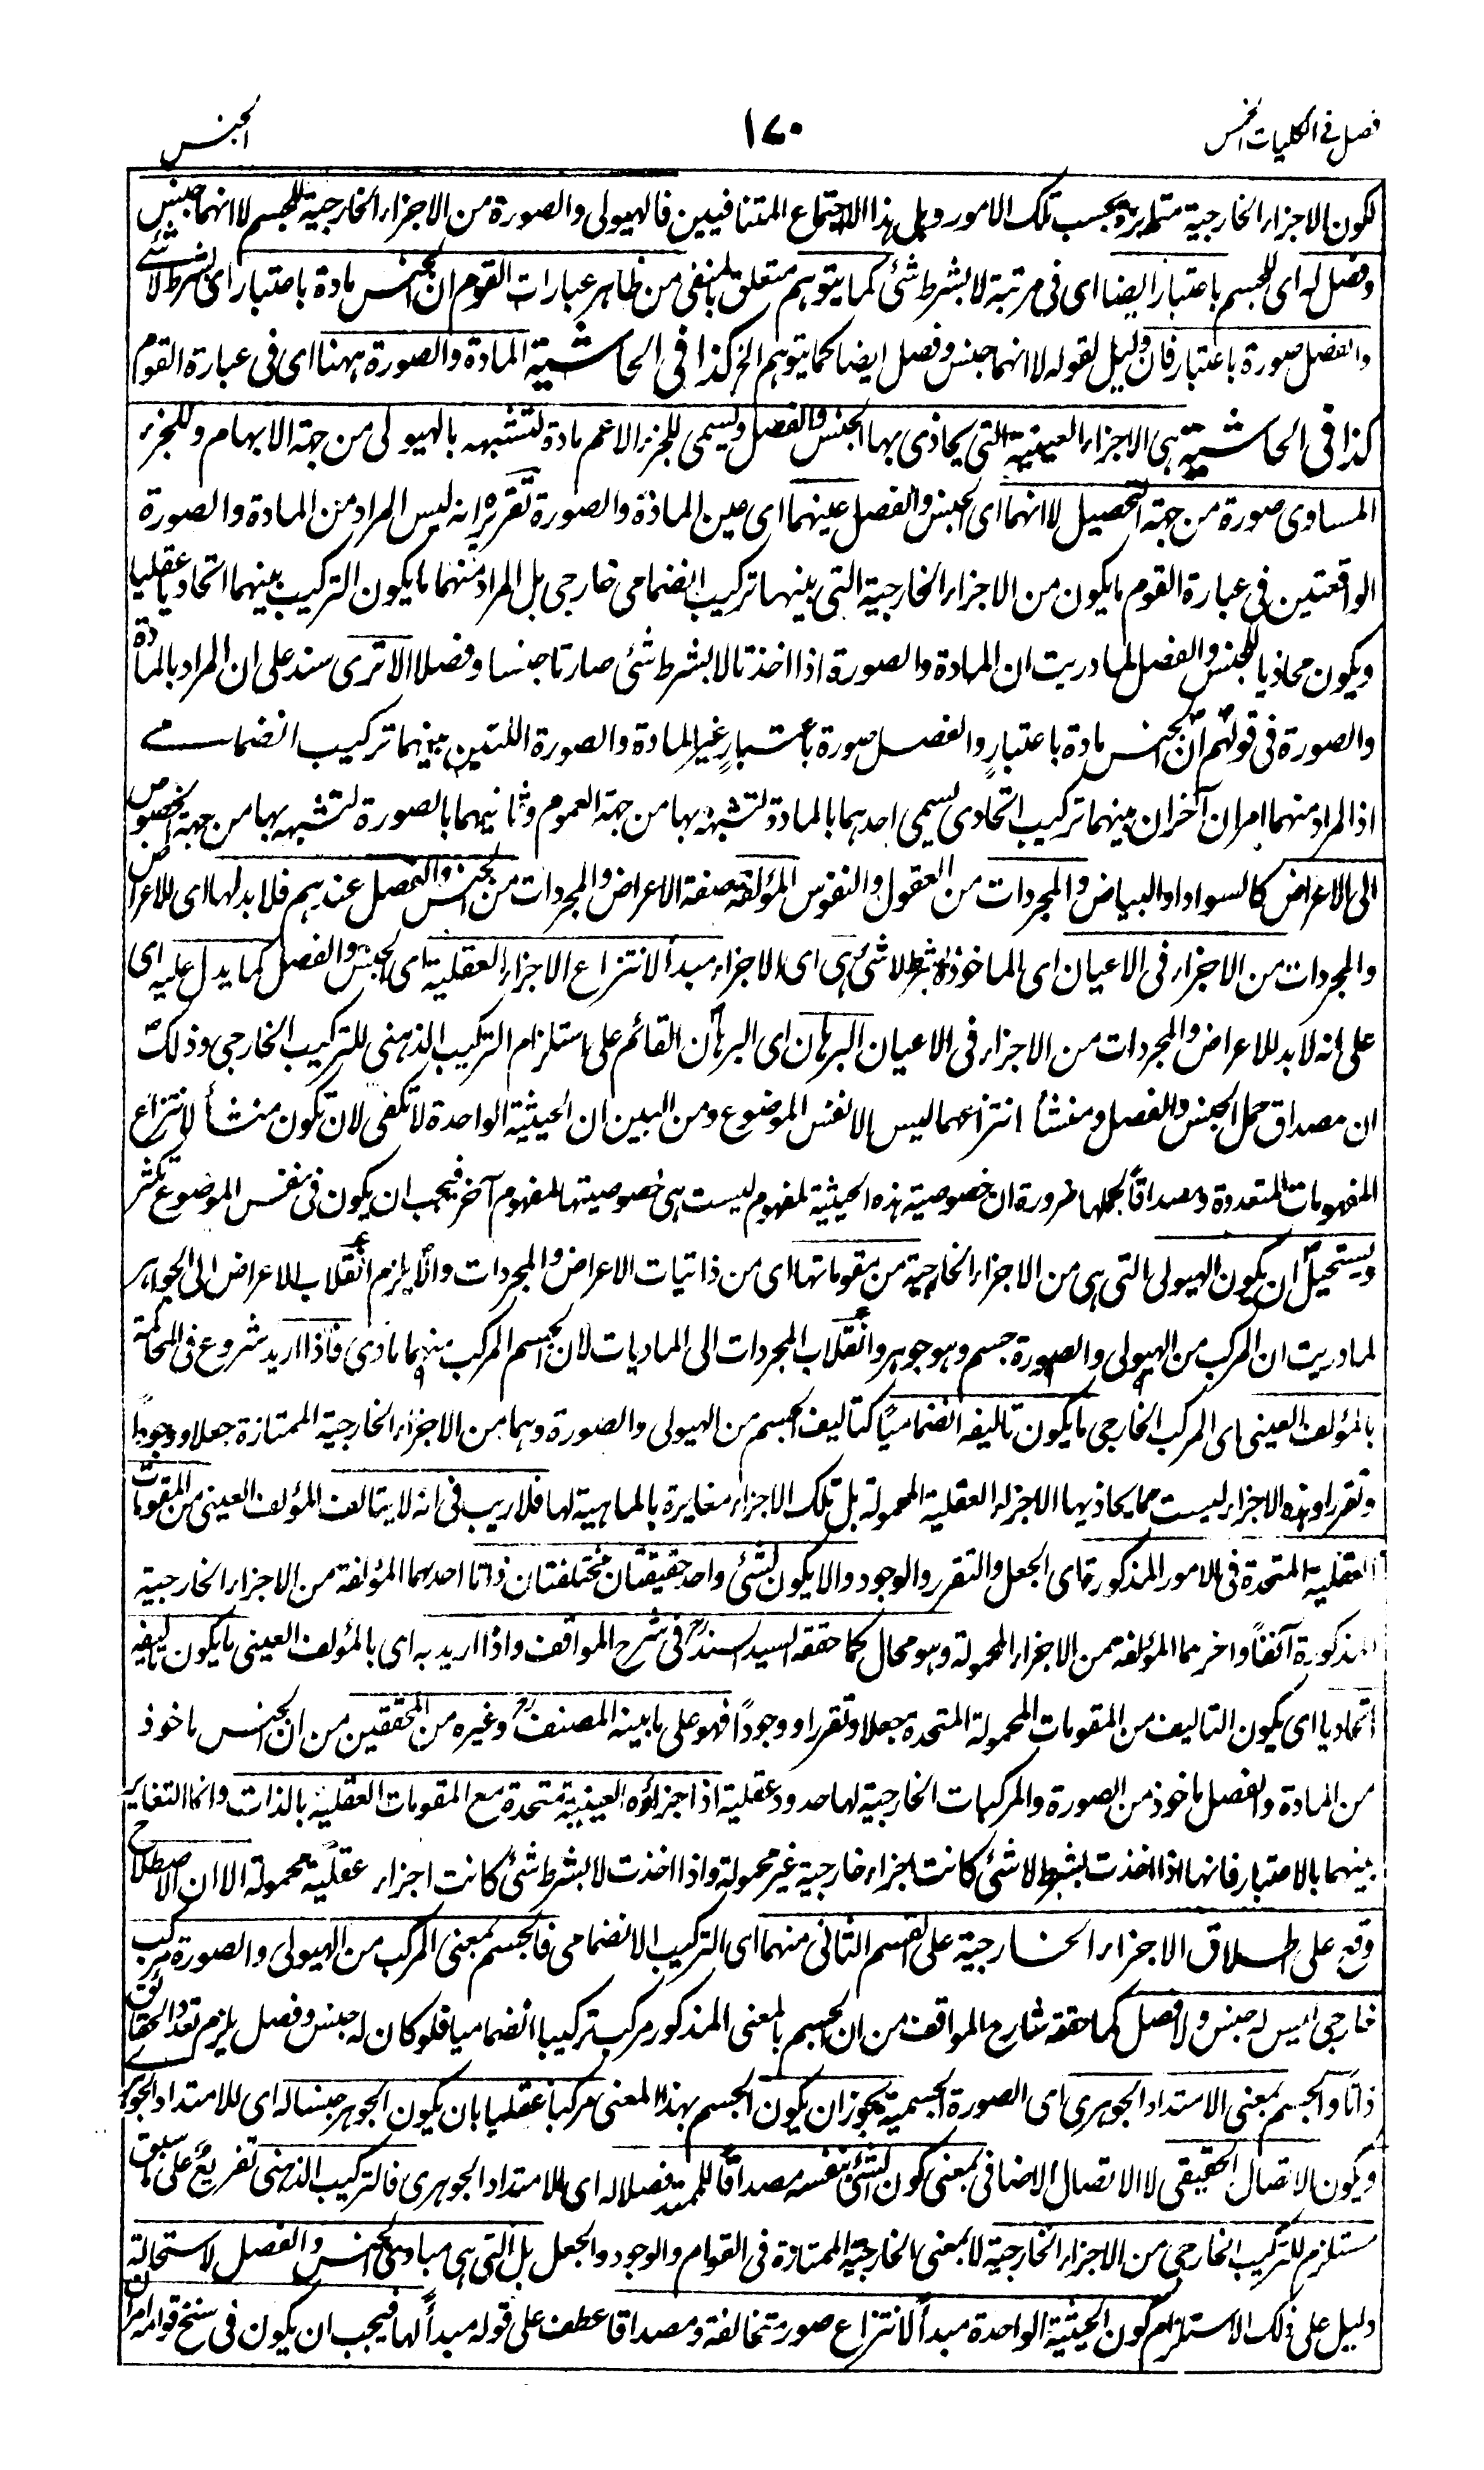 فصل فی الکلیات الخمس
۱۷۰
الجنس
لکون الاجزاء الخارجیة متغایرة بحسب تلک الامور وہل ہذا الا اجتماع المتنافیین فالہیولی والصورة من الاجزاء الخارجیة للجسم لا انہما جنس
وفصل لہ ای للجسم باعتبار ایضا ای فی مرتبة لا بشرط شئ کما یتوہم متعلق بالمنفی من ظاہر عبارات القوم ان الجنس مادة باعتبار ای بشرط لا شئے
والفصل صورة باعتبار فان دلیل لقولہ لا انہما جنس وفصل ایضا کما یتوہم الخ کذا فی الحاشیة المادة والصورة ہہنا ای فی عبارة القوم
کذا فی الحاشیة ہی الاجزاء العینیة التی یحاذی بہا الجنس والفصل ویسمی للجزء الاعم مادة لتشبہہ بالہیولی من جہة الابہام وللجزء
المساوی صورة من جہة التحصیل لا انہما ای الجنس والفصل عینہما ای عین المادة والصورة تقریرہ انہ لیس المراد من المادة والصورة
الواقعتین فی عبارة القوم ما یکون من الاجزاء الخارجیة التی بینہا ترکیب انضمامی خارجی بل المراد منہما ما یکون الترکیب بینہما اتحادیا عقلیا
ویکون محاذیا للجنس والفصل لما دریت ان المادة والصورة اذا اخذتا لا بشرط شئ صارتا جنسا وفصلا الا تری سند علی ان المراد بالمادة
والصورة فی قولہم ان الجنس مادة باعتبار والفصل صورة باعتبار غیر المادة والصورة اللتین بینہما ترکیب انضمامے
اذ المراد منہما امران آخران بینہما ترکیب اتحادی یسمی احدہما بالمادة لتشبہہ بہا من جہة العموم وثانیہما بالصورة لتشبہہ بہا من جہة الخصوص
الی الاعراض کالسواد او البیاض والمجردات من العقول والنفوس المؤلفة صفة الاعراض والمجردات من الجنس والفصل عندہم فلا بد لہا ای للاعراض
والمجردات من الاجزاء فی الاعیان ای الماخوذة بشرط لا شئ ہی ای الاجزاء مبدأ لانتزاع الاجزاء العقلیة ای الجنس والفصل کما یدل علیہ ای
علی انہ لا بد للاعراض والمجردات من الاجزاء فی الاعیان البرہان ای البرہان القائم علی استلزام الترکیب الذہنی للترکیب الخارجی وذلک
ان مصداق حمل الجنس والفصل ومنشأ انتزاعہما لیس الا نفس الموضوع ومن البین ان الحیثیة الواحدة لا تکفی لان تکون منشأ لانتزاع
المفہومات المتعددة ومصداقا لحملہا ضرورة ان خصوصیة ہذہ الحیثیة لمفہوم لیست ہی خصوصیتہا لمفہوم آخر فیجب ان یکون فی نفس الموضوع تکثر
ویستحیل ان یکون الہیولی التی ہی من الاجزاء الخارجیة من مقوماتہا ای من ذاتیات الاعراض والمجردات والا یلزم انقلاب الاعراض الی الجواہر
لما دریت ان المرکب من الہیولی والصورة جسم وہو جوہر وانقلاب المجردات الی المادیات لان الجسم المرکب منہما مادی فاذا ارید شروع فی المحاکمة
بالمؤلف العینی ای المرکب الخارجی ما یکون تالیفہ انضمامیا کتالیف الجسم من الہیولی والصورة وہما من الاجزاء الخارجیة الممتازة جعلا ووجودا
وتقررا وہذہ الاجزاء لیست مما یحاذیہا الاجزاء العقلیة المحمولة بل تلک الاجزاء مغایرة بالماہیة لہا فلا ریب فی انہ لا یتالف المؤلف العینی من المقومات
العقلیة المتحدة فی الامور المذکورة ای الجعل والتقرر والوجود والا یکون لشئ واحد حقیقتان مختلفتان ذاتا احدہما المؤلفة من الاجزاء الخارجیة
المذکورة آنفا واخرہما المؤلفة من الاجزاء المحمولة وہو محال کما حققہ السید السند فی شرح المواقف واذا ارید بہ ای بالمؤلف العینی ما یکون تالیفہ
اتحادیا ای یکون التالیف من المقومات المحمولة المتحدة جعلا وتقررا ووجودا فہو علی ما بینہ المصنف وغیرہ من المحققین من ان الجنس ماخوذ
من المادة والفصل ماخوذ من الصورة والمرکبات الخارجیة لہا حدود عقلیة اذ اجزاؤہ العینیة متحدة مع المقومات العقلیة بالذات وانما التغایر
بینہما بالاعتبار فانہا اذا اخذت بشرط لا شئ کانت اجزاء خارجیة غیر محمولة واذا اخذت لا بشرط شئ کانت اجزاء عقلیة محمولة الا ان الاصطلاح
وقع علی اطلاق الاجزاء الخارجیة علی القسم الثانی منہما ای الترکیب الانضمامی فالجسم بمعنی المرکب من الہیولی والصورة مرکب
خارجی لیس لہ جنس ولا فصل کما حققہ شارح المواقف من ان الجسم بالمعنی المذکور مرکب ترکیبا انضمامیا فلو کان لہ جنس وفصل یلزم تعدد الحقائق
ذاتا والجسم بمعنی الامتداد الجوہری ای الصورة الجسمیة یجوز ان یکون الجسم بہذا المعنی مرکبا عقلیا بان یکون الجوہر جنسا لہ ای للامتداد الجوہرے
ویکون الاتصال الحقیقی لا الاتصال الاضافی بمعنی کون الشئ بنفسہ مصداقا للممتد فصلا لہ ای للامتداد الجوہری فالترکیب الذہنی تفریع علی ما سبق
مستلزم للترکیب الخارجی من الاجزاء الخارجیة لا بمعنی الخارجیة الممتازة فی القوام والوجود والجعل بل التی ہی مبادی الجنس والفصل لاستحالة
دلیل علی ذلک الاستلزام کون الحیثیة الواحدة مبدأ لانتزاع صور متخالفة ومصداقا عطف علی قولہ مبدأ لہا فیجب ان یکون فی سنخ قوامہ امران